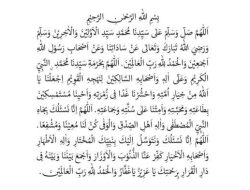 بِسْمِ اللَّهِ الرَّحْمٰنِ الرَّحِيْمِ
اَللّٰهُمَّ صَلِّ وَسَلِّمْ عَلَى سَيِّدِنَا مُحَمَّدٍ سَيِّدِ الْأَوَّلِيْنَ وَالْآخِرِيْنَ وَسَلِّمْ
وَرَضِيَ اللَّهُ تَبَارَكَ وَتَعَالَى عَنْ سَادَاتِنَا وَعَنْ أَصْحَابِ رَسُوْلِ اللَّهِ
أَجْمَعِيْنَ وَالْحَمْدُ لِلّٰهِ رَبِّ الْعَالَمِيْنَ. اَللّٰهُمَّ بِحُرْمَةِ سَيِّدِنَا مُحَمَّدٍ النَّبِيِّ
الْكَرِيْمِ وَعَلَى آلِهِ وَأَصْحَابِهِ السَّالِكِيْنَ لِنَهْجِهِ الْقَوِيْمِ اجْعَلْنَا يَا
اللَّهُ مِنْ خِيَارِ أُمَّتِهِ وَاحْشُرْنَا غَدًا فِي زُمْرَتِهِ وَأَحْيِنَا مُسْتَمْسِكِيْنَ
بِطَاعَتِهِ وَمَحَبَّتِهِ وَأَمِتْنَا عَلَى سُنَّتِهِ وَجَمَاعَتِهِ. اَللّٰهُمَّ إِنَّا نَسْئَلُكَ بِجَاهِ
النَّبِيِّ الْمُصْطَفَى وَآلِهِ أَهْلِ الصِّدْقِ وَالْوَفَى كُنْ لَنَا مُعِيْنًا وَمُشَفِّعًا.
اَللّٰهُمَّ إِنَّا نَسْئَلُكَ وَنَتَوَسَّلُ إِلَيْكَ بِحَبِيْبِكَ الْمُخْتَارِ وَآلِهِ الْأَطْهَارِ
وَأَصْحَابِهِ الْأَخْيَارِ كَفِّرْ عَنَّا الذُّنُوْبَ وَالْأَوْزَارَ وَاجْمَعْ بَيْنَنَا وَبَيْنَهُ فِي
دَارِ الْقَرَارِ بِرَحْمَتِكَ يَا عَزِيْزُ يَا غَفَّارُ وَالْحَمْدُ لِلّٰهِ رَبِّ الْعَالَمِيْنَ.